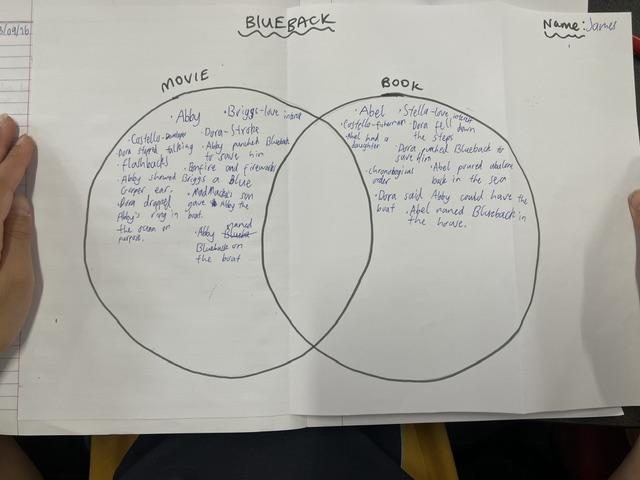 3/09/26
BLUEBACK
Name: James
MOVIE
BOOK
• Abby
• Briggs-love interest
• Costello-Developer
• Dora-Stroke
• Dora stopped talking
• Abby punched Blueback
to save him
• flashbacks
• Bonfire and fireworks
• Abby showed Briggs a Blue
Groper ear.
• Mad Macka's son
gave Abby the
boat.
• Dora dropped
Abby's ring in
the ocean on
purpose.
• Abby named
Blueback on
the boat
• Abel
• Stella-love interest
• Costello-fisherman
• Dora fell down
the steps
• Abel had a
daughter
• Dora pushed Blueback to
save him
• chronological
order
• Abel poured abalone
back in the sea
• Dora said Abby could have the
boat
• Abel named Blueback in
the house.